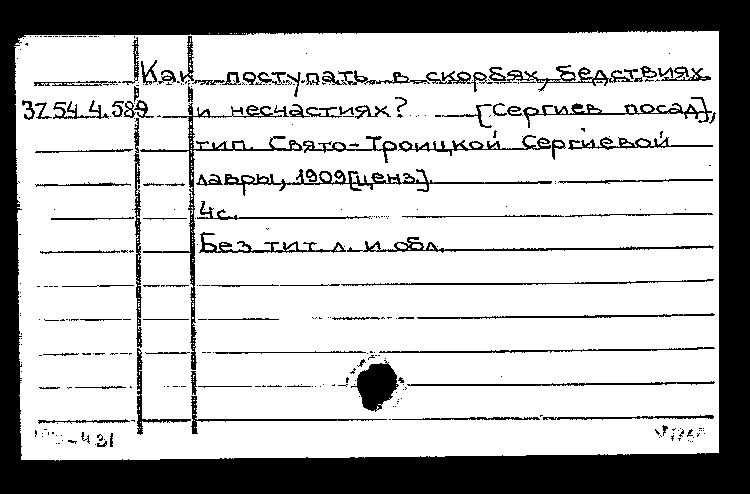 Как поступать в скорбях, бедствиях
37.54.4.589 и несчастиях? [Сергиев посад],
тип. Свято-Троицкой Сергиевой
лавры, 1909[ценз].
4с.
Без тит. л. и обл.